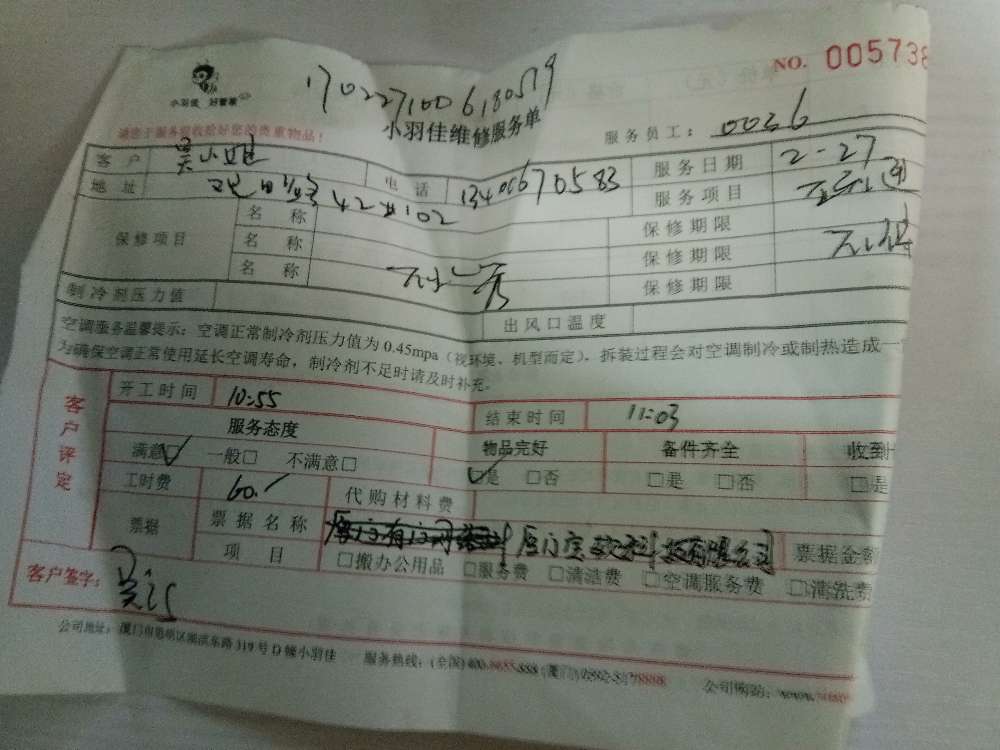 NO. 005738
小羽佳 好管家
1702271006180519
小羽佳维修服务单
请您于服务前收拾好您的贵重物品!
服务员工: 0036
客户 吴小姐 电话 13400670583 服务日期 2-27
地址 42#102 服务项目
保修项目 名称 保修期限
名称 保修期限
名称 保修期限
制冷剂压力值 出风口温度
空调服务温馨提示: 空调正常制冷剂压力值为 0.45mpa (视环境、机型而定)。拆装过程会对空调制冷或制热造成一
为确保空调正常使用延长空调寿命, 制冷剂不足时请及时补充。
客户评定
开工时间 10:55 结束时间 11:03
服务态度 物品完好 备件齐全 收到
满意☑ 一般□ 不满意□ ☑是 □否 □是 □否 □是
工时费 60. 代购材料费
票据 票据名称 票据金额
项目 □搬办公用品 □服务费 □清洁费 □空调服务费 □清洗费
客户签字:
公司地址: 厦门市思明区湖滨东路 319 号 D 幢小羽佳 服务热线: (全国) 400- 公司网站: www.